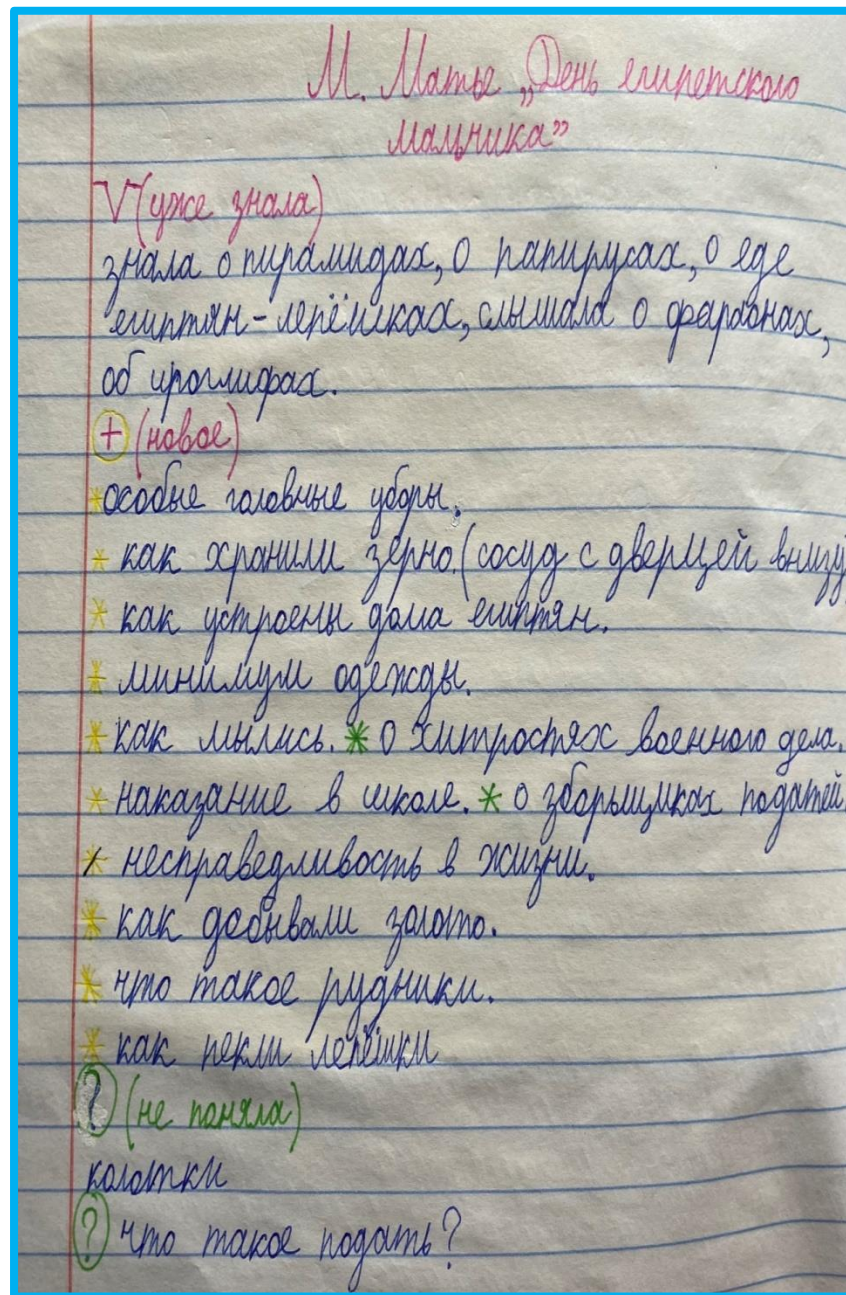 М. Матье „День египетского
мальчика”
V (уже знала)
знала о пирамидах, о папирусах, о еде
египтян - лепёшках, слышала о фараонах,
об ироглифах.
+ (новое)
* особые головные уборы.
* как хранили зерно. (сосуд с дверцей внизу)
* как устроены дома египтян.
* минимум одежды.
* как мылись. * о хитростях военного дела.
* наказание в школе. * о зборыщиках податей.
* несправедливость в жизни.
* как добывали золото.
* что такое рудники.
* как пекли лепёшки
? (не поняла)
колотки
? что такое подать?